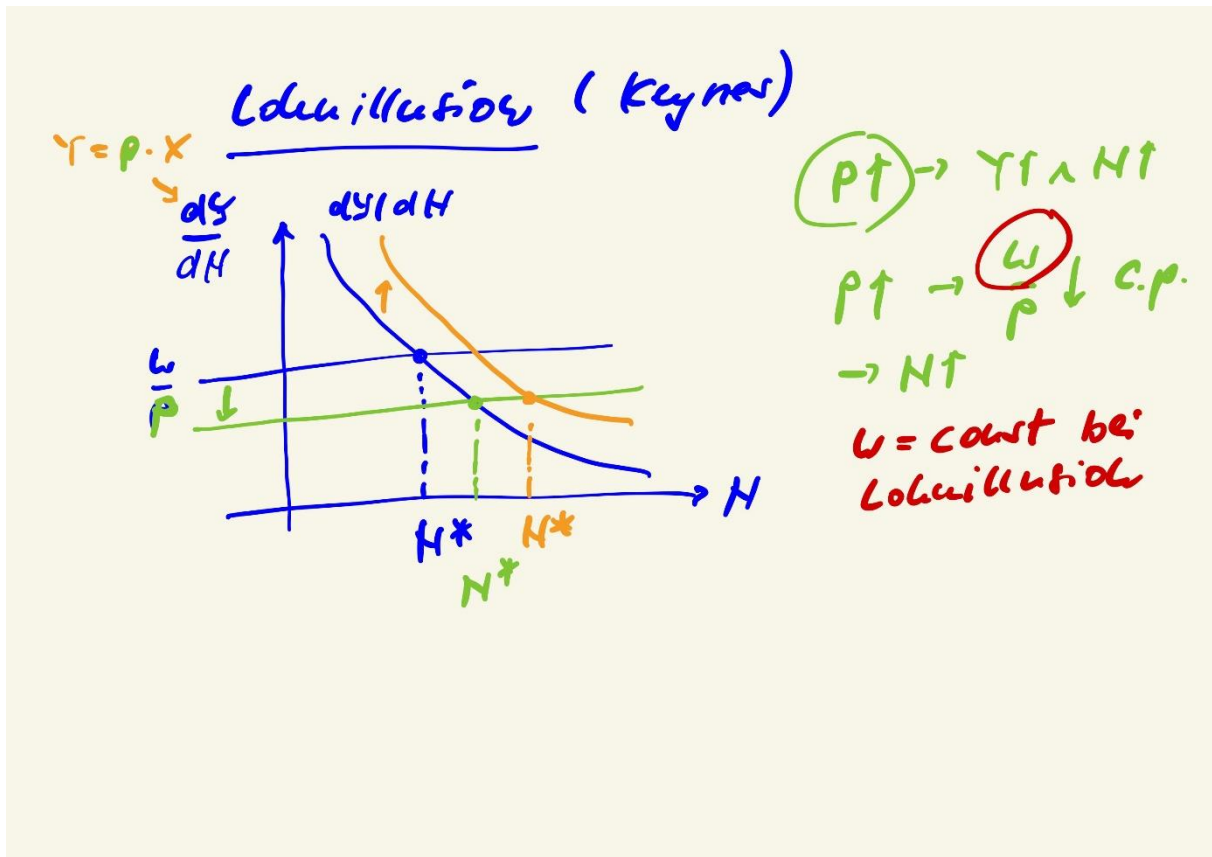 Lohnillusion (Keynes)
Y = p · X
dY
dN
dY/dN
w
p
N
N*
N*
N*
p↑ → Y↑ ∧ N↑
p↑ → w/p ↓ c.p.
→ N↑
w = const bei
Lohnillusion